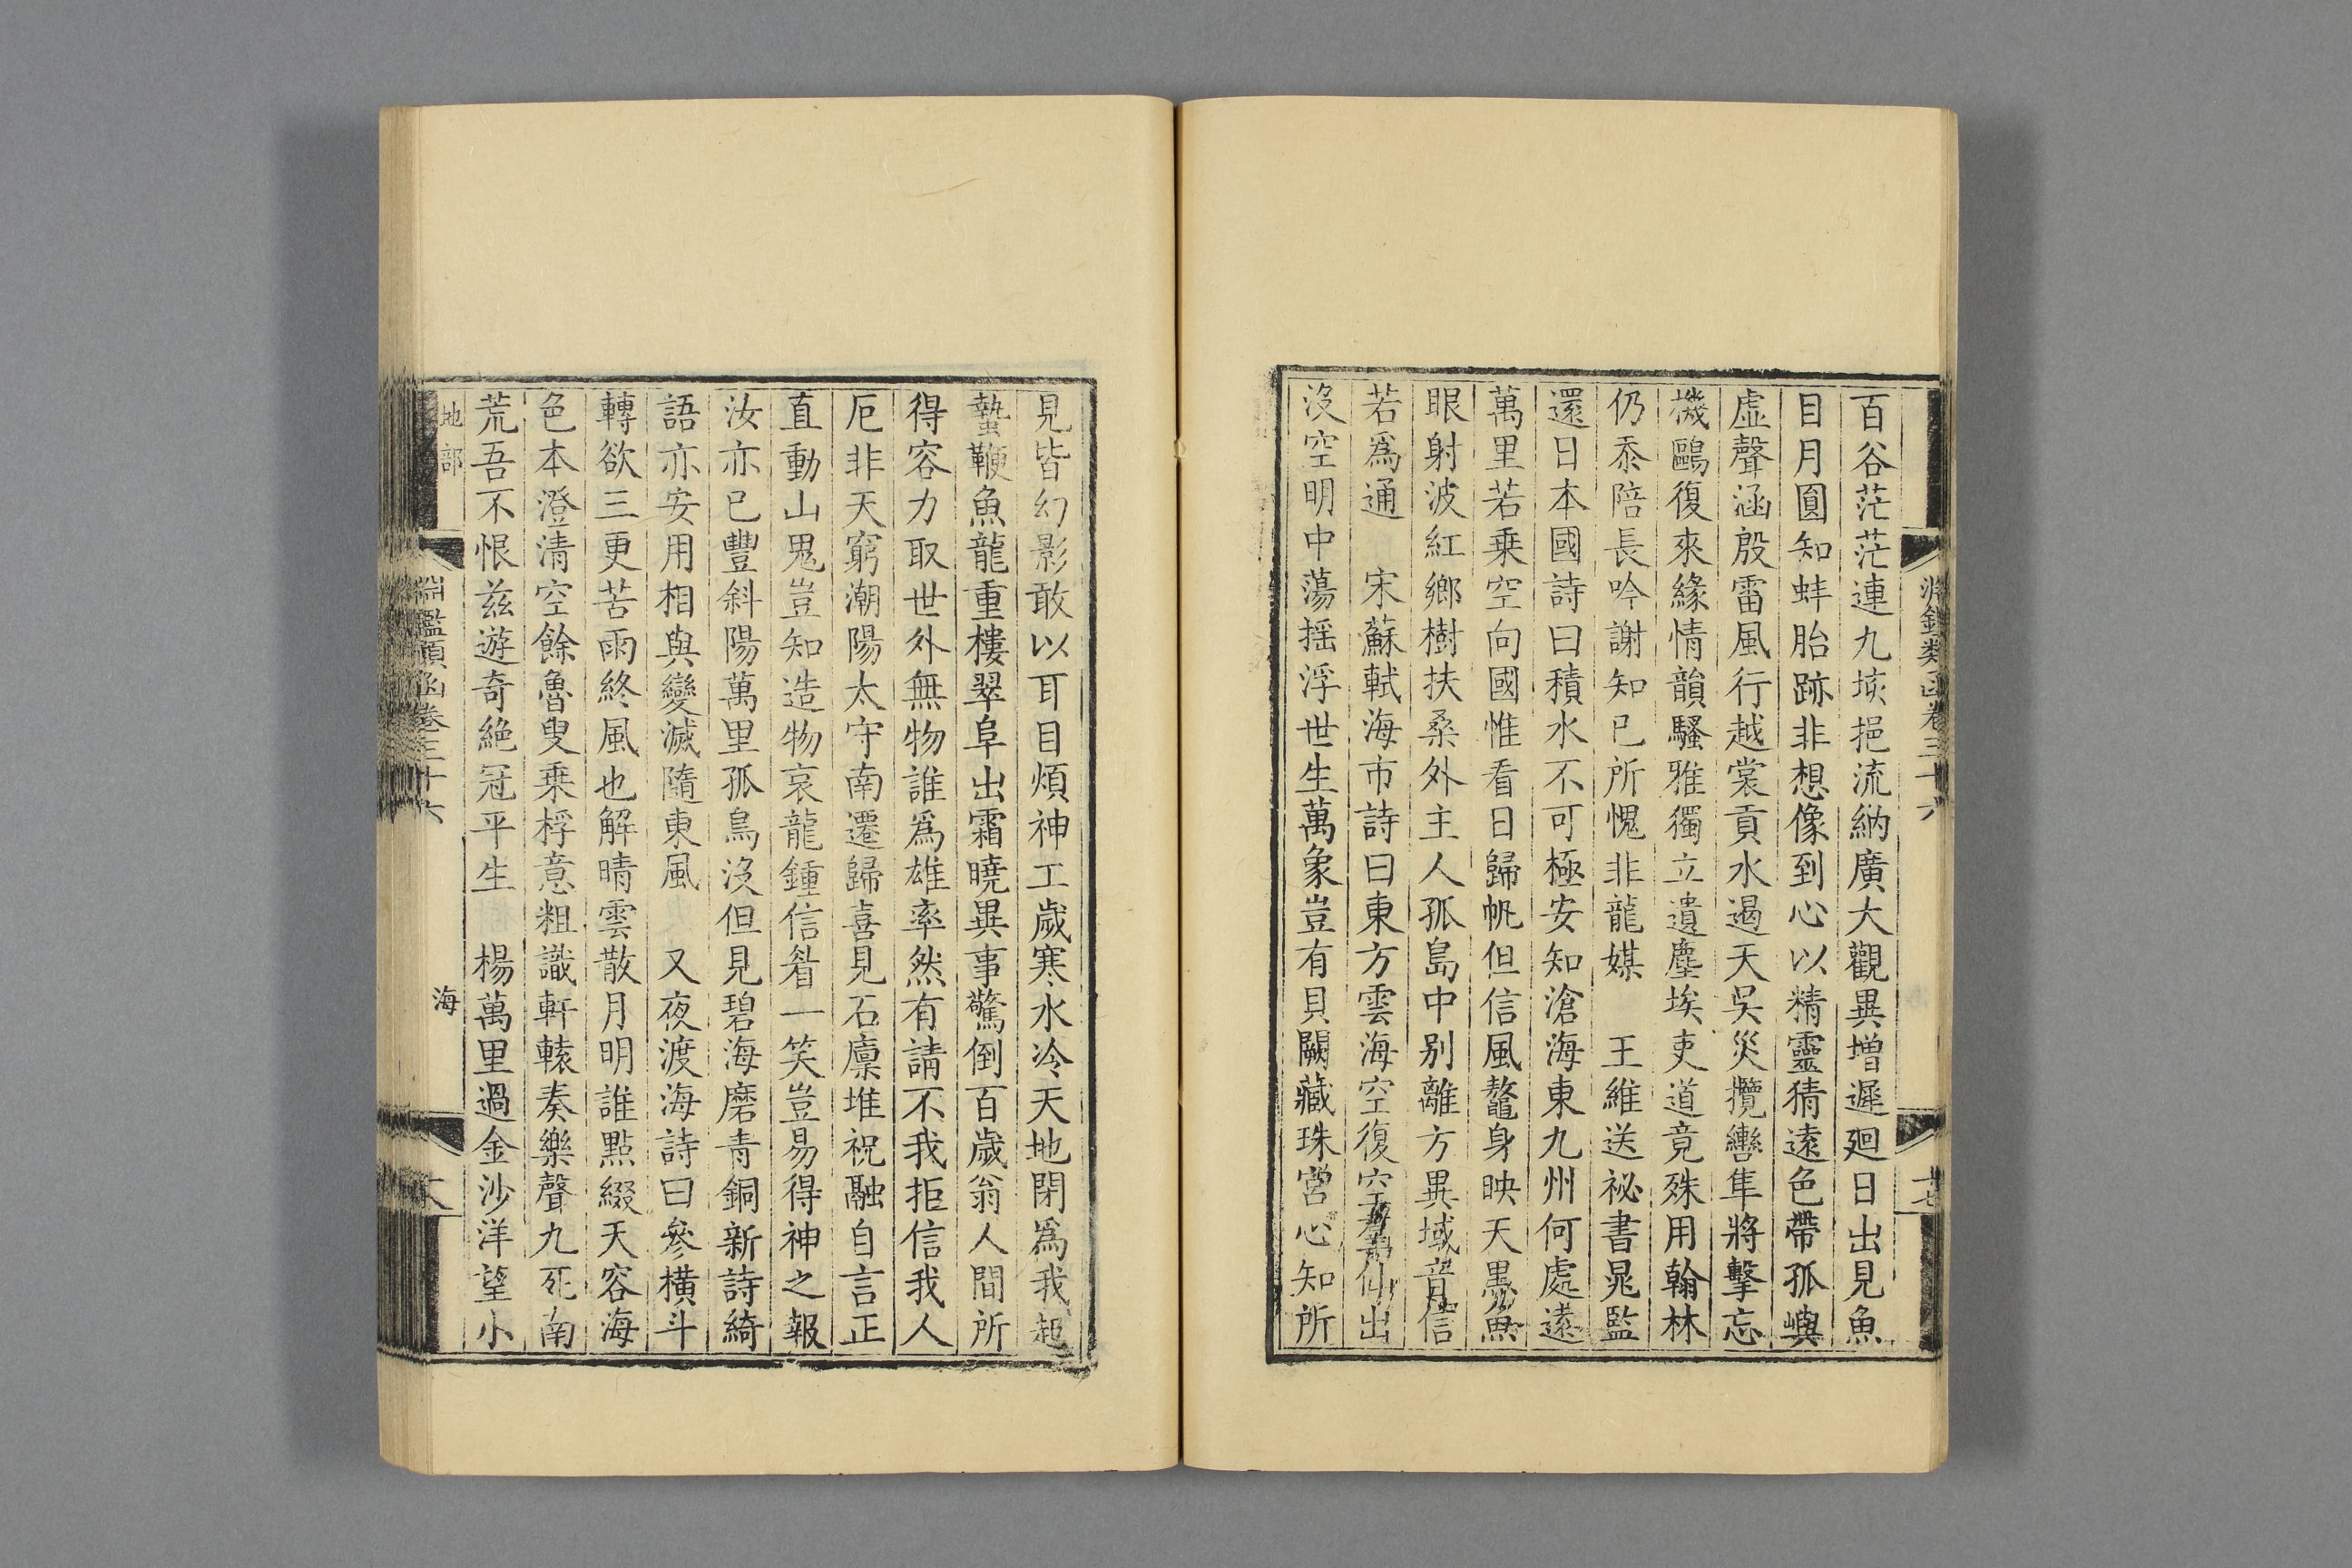 百谷茫茫連九垓挹流納廣大觀異增遲廻日出見魚
目月圓知蚌胎跡非想像到心以精靈猜遠色帶孤嶼
虛聲涵殷雷風行越裳貢水遏天吳災攬轡隼將擊忘
機鷗復來緣情韻騷雅獨立遺塵埃吏道竟殊用翰林
仍忝陪長吟謝知已所愧非龍媒　王維送祕書晁監
還日本國詩曰積水不可極安知滄海東九州何處遠
萬里若乗空向國惟看日歸帆但信風鼇身映天黑魚
眼射波紅鄉樹扶桑外主人孤島中別離方異域音信
若爲通　宋蘇軾海市詩曰東方雲海空復空羣仙出
沒空明中蕩揺浮世生萬象豈有貝闕藏珠宮心知所
見皆幻影敢以耳目煩神工歲寒水冷天地閉爲我起
蟄鞭魚龍重樓翠阜出霜曉異事驚倒百歲翁人間所
得容力取世外無物誰爲雄率然有請不我拒信我人
厄非天窮潮陽太守南遷歸喜見石廩堆祝融自言正
直動山鬼豈知造物哀龍鍾信眉一笑豈易得神之報
汝亦已豐斜陽萬里孤鳥沒但見碧海磨青銅新詩綺
語亦安用相與變滅隨東風　又夜渡海詩曰參橫斗
轉欲三更苦雨終風也解晴雲散月明誰點綴天容海
色本澄清空餘魯叟乗桴意粗識軒轅奏樂聲九死南
荒吾不恨茲遊奇絕冠平生　楊萬里過金沙洋望小
地部
淵鑑類函卷三十六
海